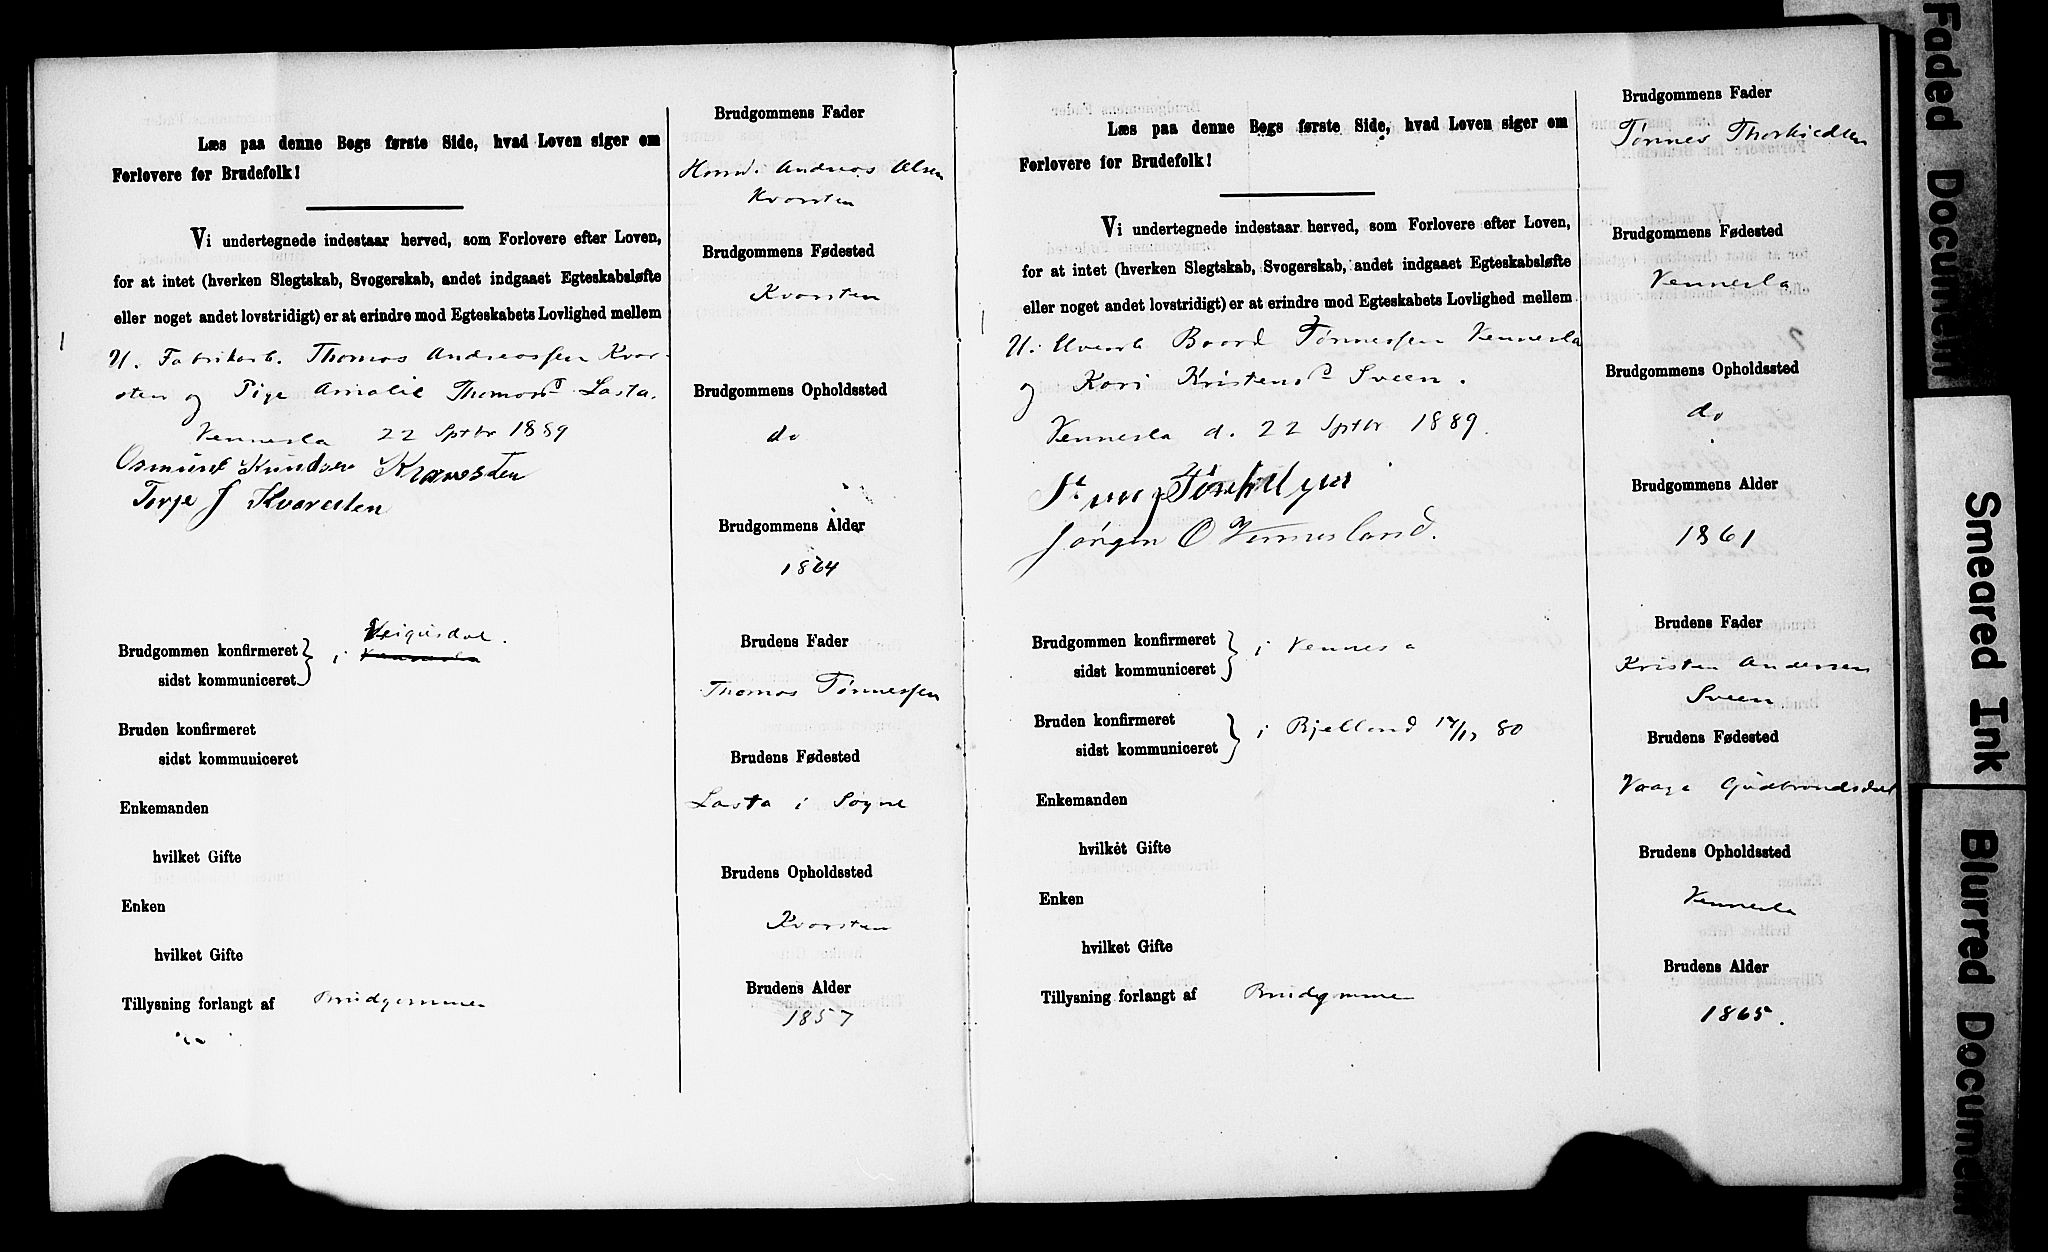 Læs paa denne Bogs første Side, hvad Loven siger om
Forlovere for Brudefolk!
Vi undertegnede indestaar herved, som Forlovere efter Loven,
for at intet (hverken Slegtskab, Svogerskab, andet indgaaet Egteskabsløfte
eller noget andet lovstridigt) er at erindre mod Egteskabets Lovlighed mellem
U. Fabrikarb. Thomas Andreassen Kvar-
sten og Pige Amalie Thomasd Lasta.
Vennesla 22 Sptbr 1889
Osmund Knudsen
Torje J Kvarsten
Brudgommen konfirmeret
sidst kommuniceret
i Vennesla
Bruden konfirmeret
sidst kommuniceret
Enkemanden
hvilket Gifte
Enken
hvilket Gifte
Tillysning forlangt af Brudgommen
Brudgommens Fader
Andreas Olsen
Kvarsten
Brudgommens Fødested
Kvarsten
Brudgommens Opholdssted
do
Brudgommens Alder
1864
Brudens Fader
Thomas Tønnessen
Brudens Fødested
Lasta i Søgne
Brudens Opholdssted
Kvarsten
Brudens Alder
1857
Læs paa denne Bogs første Side, hvad Loven siger om
Forlovere for Brudefolk!
Vi undertegnede indestaar herved, som Forlovere efter Loven,
for at intet (hverken Slegtskab, Svogerskab, andet indgaaet Egteskabsløfte
eller noget andet lovstridigt) er at erindre mod Egteskabets Lovlighed mellem
U. Baard Tønnessen Vennesla
og Kari Kristensd Sveen.
Vennesla d. 22 Sptbr 1889.
Jørgen O Vennesland.
Brudgommen konfirmeret
sidst kommuniceret
i Vennesla
Bruden konfirmeret
sidst kommuniceret
i Bjelland 80
Enkemanden
hvilket Gifte
Enken
hvilket Gifte
Tillysning forlangt af Brudgommen
Brudgommens Fader
Tønnes
Brudgommens Fødested
Vennesla
Brudgommens Opholdssted
do
Brudgommens Alder
1861
Brudens Fader
Kristen Andersen
Sveen
Brudens Fødested
Vaage Gudbrandsdal
Brudens Opholdssted
Vennesla
Brudens Alder
1865.
Faded Document
Smeared Ink
Blurred Document